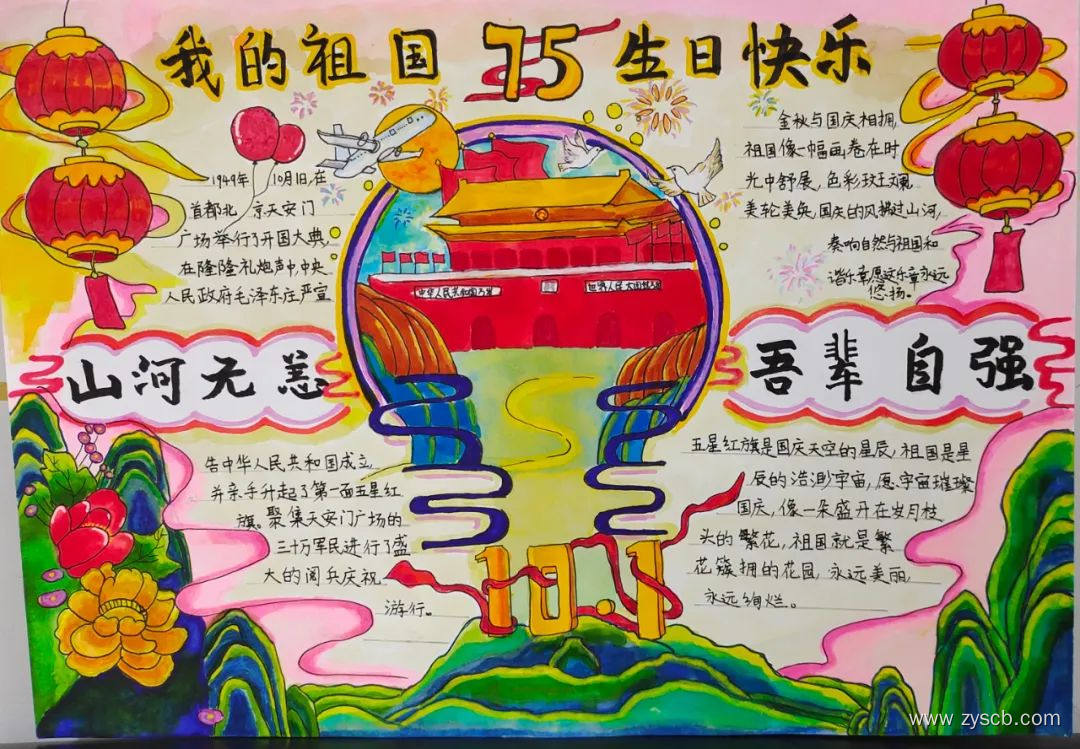 我的祖国 75 生日快乐
1949年 10月1日,在
首都北 京天安门
广场举行了开国大典,
在隆隆礼炮声中,中央
人民政府毛泽东庄严宣
金秋与国庆相拥,
祖国像一幅画卷在时
光中舒展,色彩斑斓
美轮美奂,国庆的风拂过山河,
奏响自然与祖国和
谐乐章愿这乐章永远
悠扬。
中华人民共和国万岁
世界人民大团结万岁
山河无恙
吾辈自强
告中华人民共和国成立,
并亲手升起了第一面五星红
旗。聚集天安门广场的
三十万军民进行了盛
大的阅兵庆祝
游行。
五星红旗是国庆天空的星辰,祖国是星
辰的浩渺宇宙,愿宇宙璀璨
国庆,像一朵盛开在岁月枝
头的繁花,祖国就是繁
花簇拥的花园,永远美丽,
永远绚烂。
10.1
www.zyscb.com